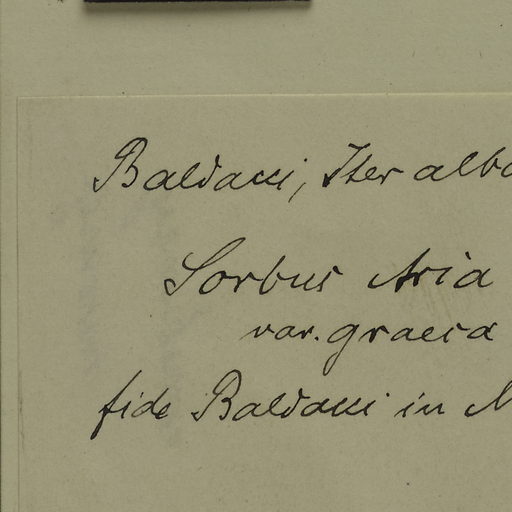 Baldacci, Iter alba
Sorbus Aria
var. graeca
fide Baldacci in M